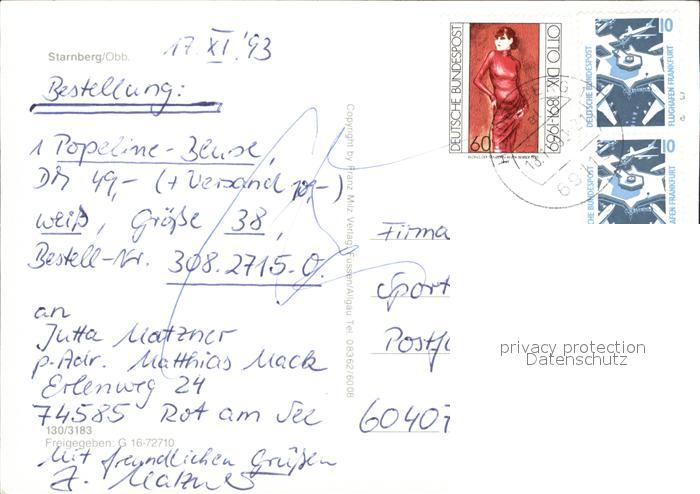 Starnberg/Obb.
17. XI. '93
Bestellung:
1 Popeline-Bluse,
DM 49,- (+ Versand
weiß, Größe 38,
Bestell-Nr. 308.2715.0.
an
Jutta Matzner
p. Adr. Matthias Mack
Erlenweg 24
74585 Rot am See
130/3183
Freigegeben: G 16-72710
Mit freundlichen Grüßen
J. Matzner
Copyright by Franz Milz Verlag Füssen/Allgäu Tel. 08362/6008
DEUTSCHE BUNDESPOST
60
OTTO DIX 1891-1969
10
DEUTSCHE BUNDESPOST
FLUGHAFEN FRANKFURT
10
HE BUNDESPOST
AFEN FRANKFURT
Firma
Sport
Postf
60407
privacy protection
Datenschutz